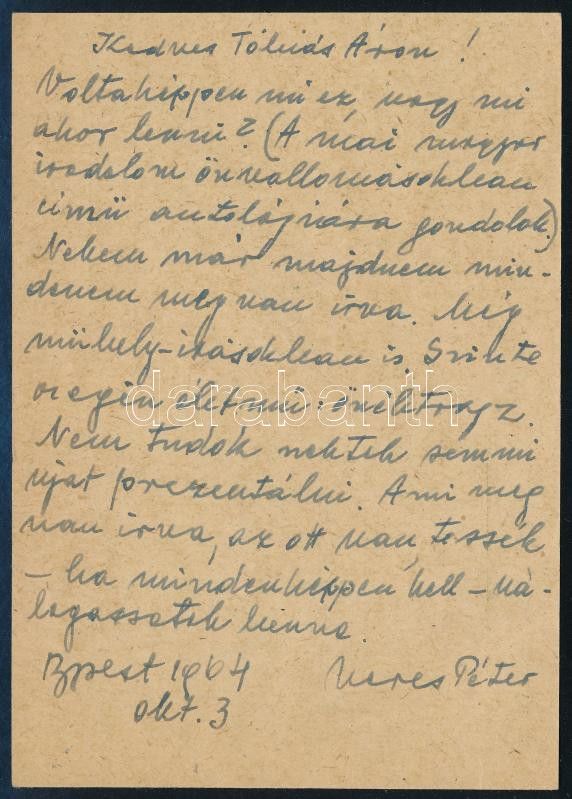 Kedves Tóbiás Áron!
Voltaképpen mi ez, vagy mi
akar lenni? (A mai magyar
irodalom önvallomásokban
című antológiára gondolok.)
Nekem már majdnem min-
denem meg van írva. Még
műhely-írásokban is. Szinte
az egész életmű: önéletrajz.
Nem tudok nektek semmi
ujat prezentálni. Ami meg
van írva, az ott van, tessék
– ha mindenképpen kell – vá-
logassatok benne.
Bpest 1964 Veres Péter
okt. 3
darabanth